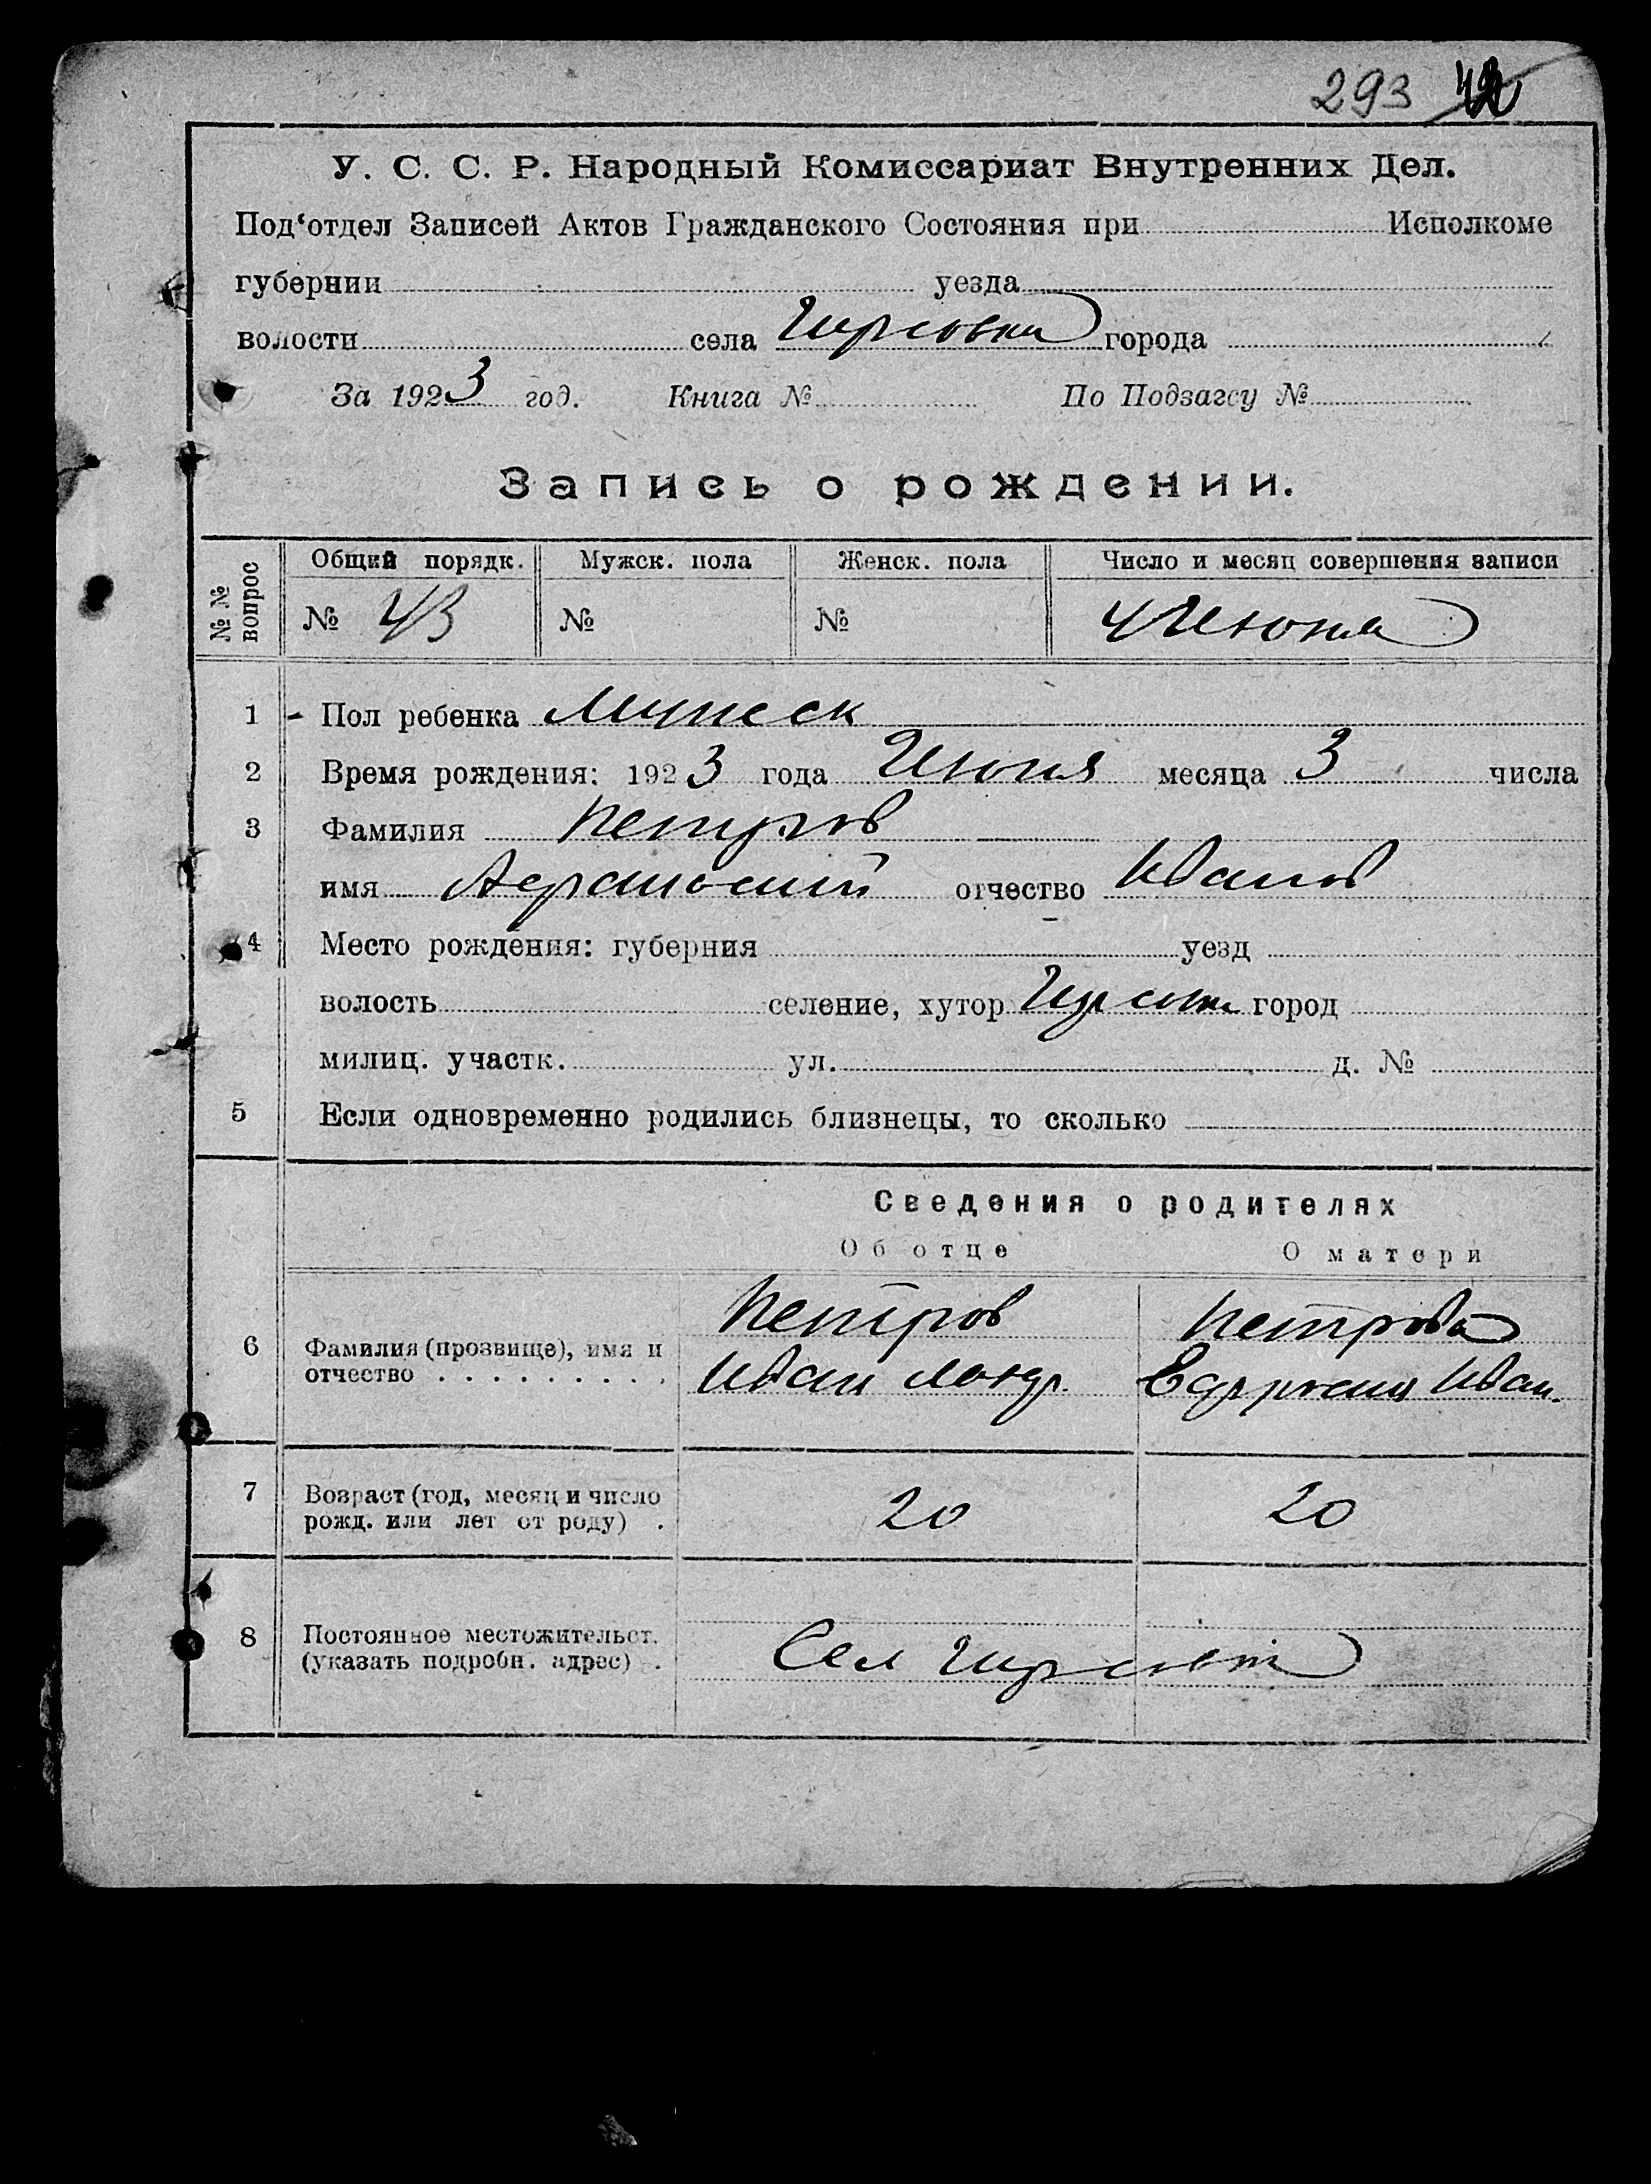 293
У. С. С. Р. Народный Комиссариат Внутренних Дел.
Под‘отдел Записей Актов Гражданского Состояния при Исполкоме
губернии уезда
волости села города
За 1923 год. Книга № По Подзагсу №
Запись о рождении.
№№ вопрос Общий порядк. Мужск. пола Женск. пола Число и месяц совершения записи
№ 43 № № 4 Июня
1 Пол ребенка Мужеск
2 Время рождения: 1923 года Июня месяца 3 числа
3 Фамилия Петров
имя отчество Иванов
4 Место рождения: губерния уезд
волость селение, хутор город
милиц. участк. ул. д. №
5 Если одновременно родились близнецы, то сколько
Сведения о родителях
Об отце О матери
Петров Петрова
6 Фамилия (прозвище), имя и
отчество Иван Иван.
7 Возраст (год, месяц и число
рожд. или лет от роду) 20 20
8 Постоянное местожительст.
(указать подробн. адрес) Сел